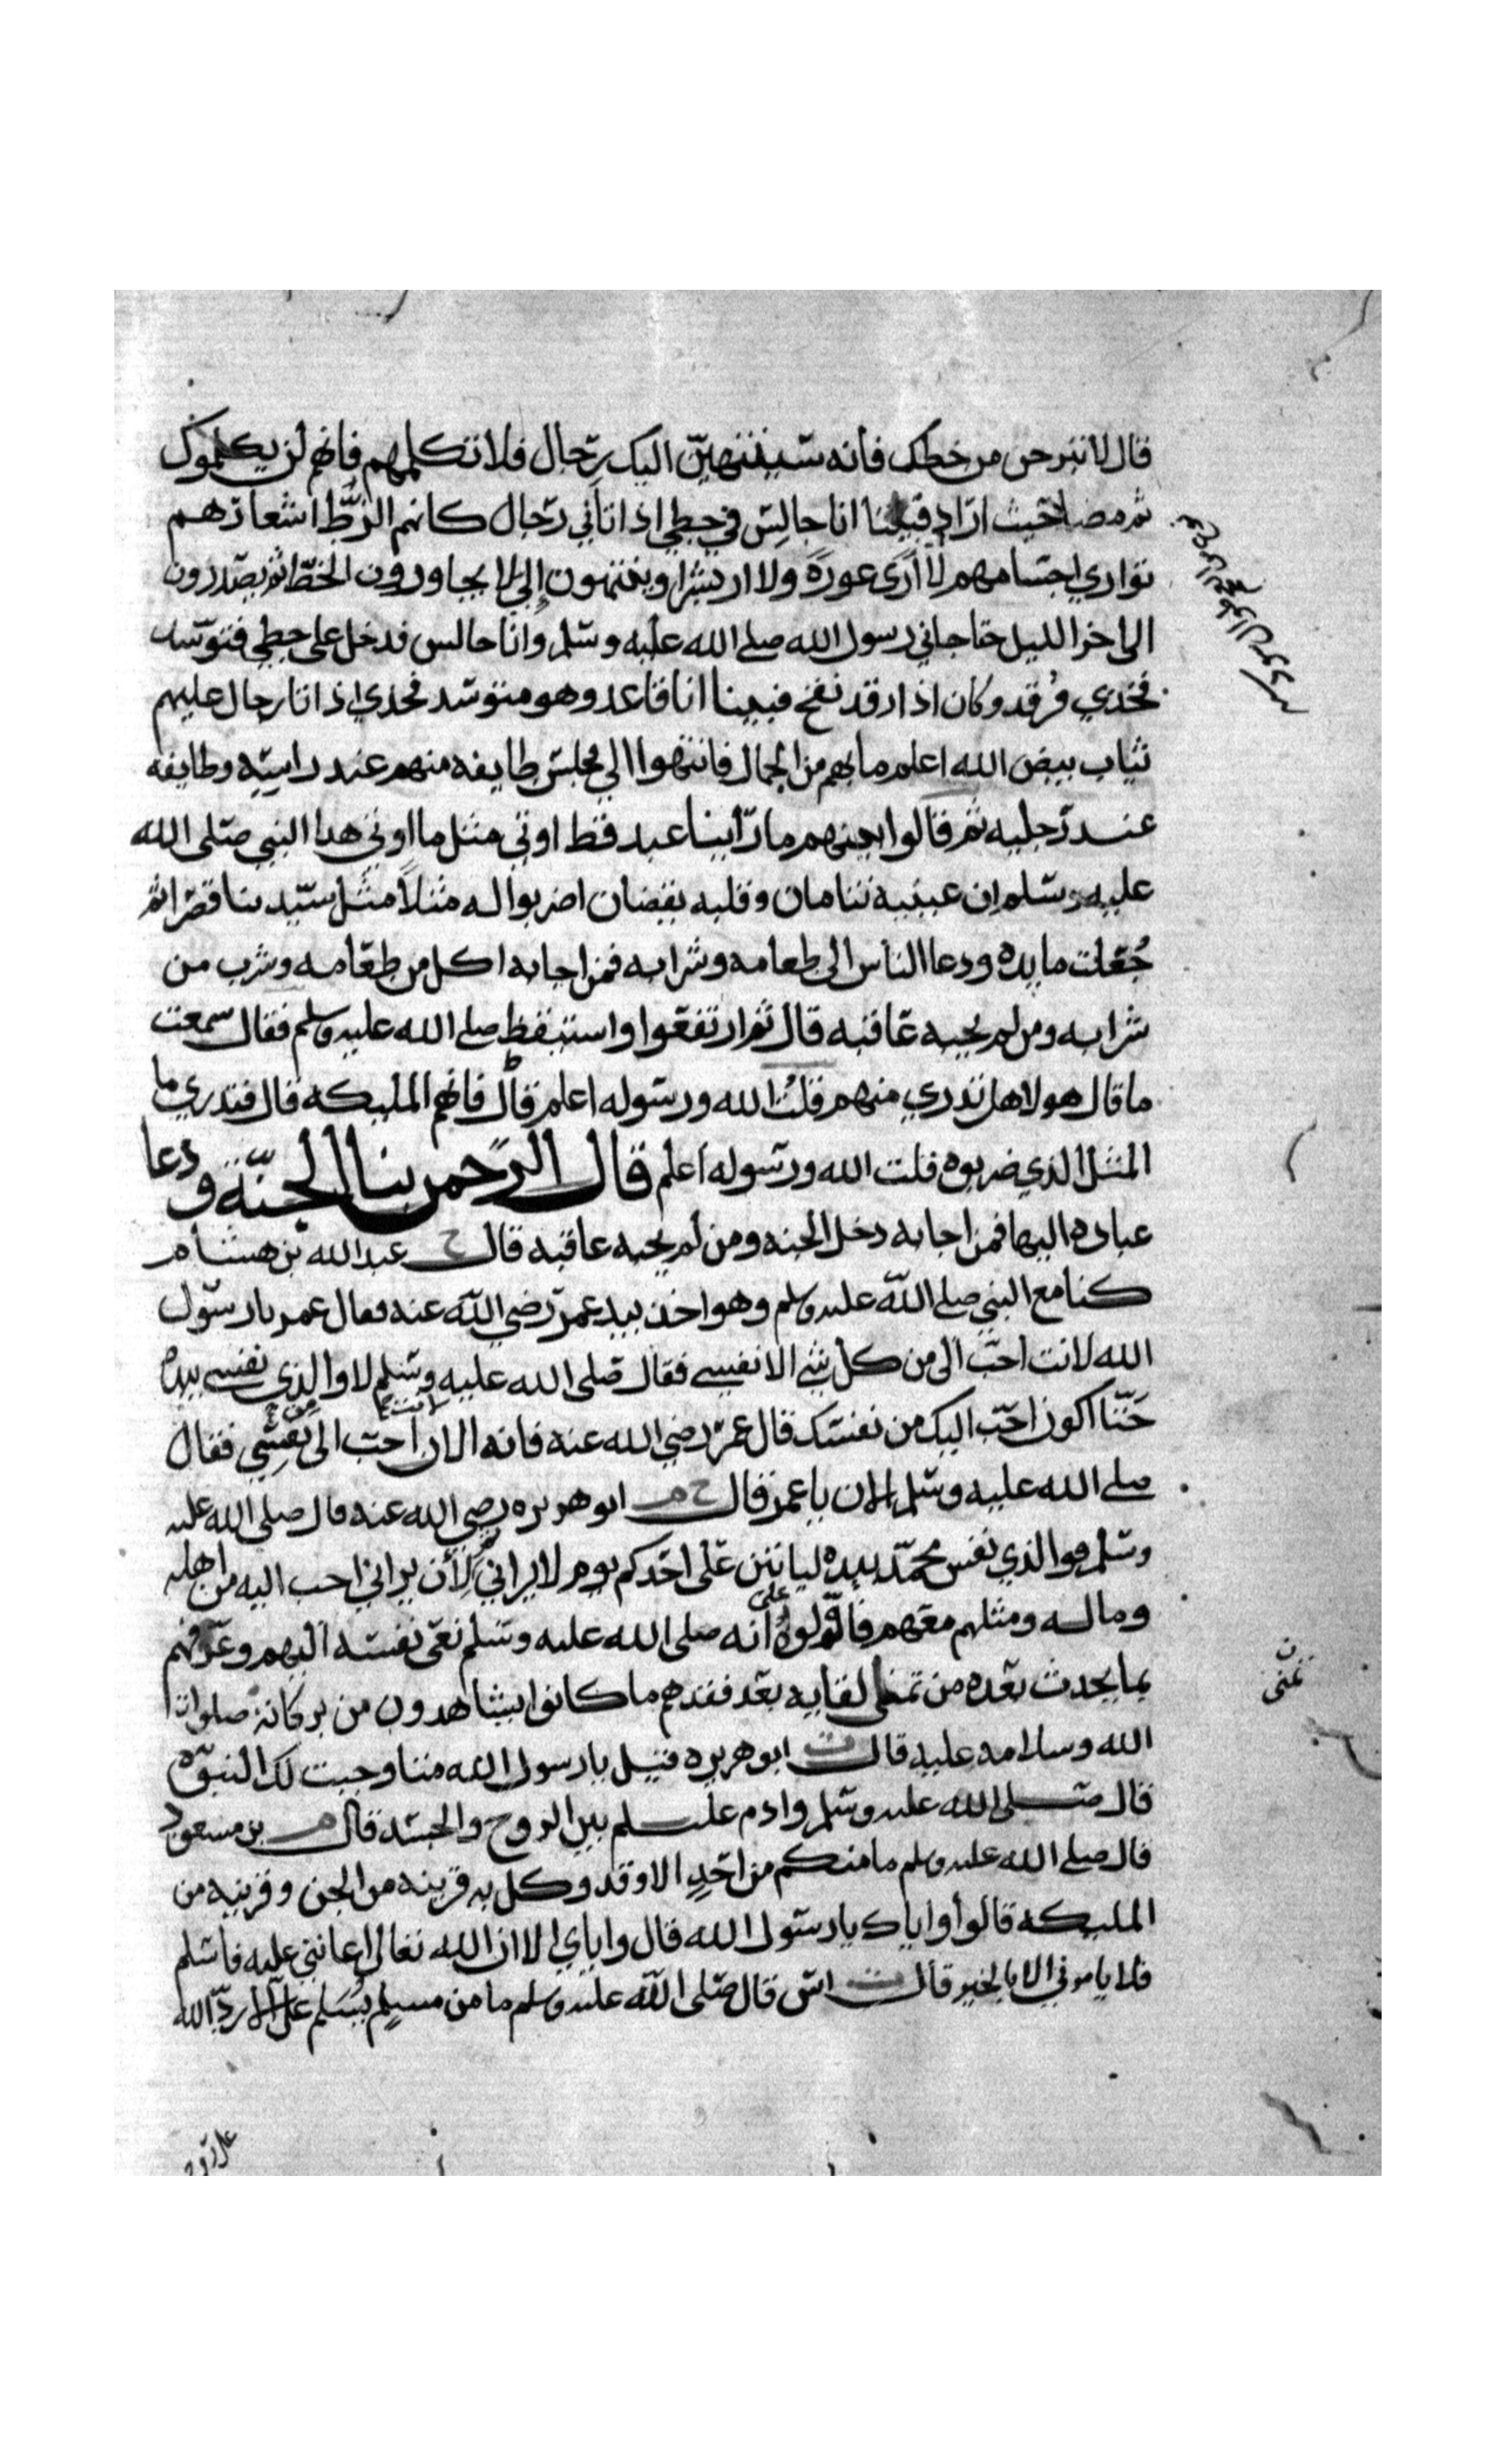 قال لا تبرحن من خطك فأنه سينتهين اليك رجال فلا تكلمهم فانهم لن يكلموك
ثم مضا حيث اراد فبينا انا جالس في خطي اذ اتاني رجال كانهم الزط اشعارهم
تواري اجسامهم لا أرى عورة ولا ار بشرا وينتهون إلي لا يجاوزون الخط ثم يصدرون
الى اخر الليل حتا جاني رسول الله صلى الله عليه وسلم وانا جالس فدخل على خطي فتوسد
فخذي فرقد وكان اذا رقد نفخ فبينا انا قاعد وهو متوسد فخذي اذ انا رجال عليهم
ثياب بيض الله اعلم ما بهم من الجمال فانتهوا الي مجلس طايفه منهم عند راسه وطايفه
عند رجليه ثم قالوا بينهم ما رأينا عبد قط اوتي مثل ما اوتي هذا النبي صلى الله
عليه وسلم ان عينيه تنامان وقلبه يقضان اضربوا له مثلاً مثل سيد بنا قصرا ثم
جُعلت مايده ودعا الناس الى طعامه وشرابه فمن اجابه اكل من طعامه وشرب من
شرابه ومن لم يجبه عاقبه قال ثم ارتفعوا واستيقظ صلى الله عليه وسلم فقال سمعت
ما قال هولا هل تدري منهم قلتُ الله ورسوله اعلم قال فانهم المليكه قال فتدري ما
المثل الذي ضربوه قلت الله ورسوله اعلم قال الرحمن بنا الجنّة ودعا
عباده اليها فمن اجابه دخل الجنه ومن لم يجبه عاقبه قال خ عبد الله بن هشام
كنا مع النبي صلى الله عليه وسلم وهو اخذ بيد عمر رضي الله عنه فقال عمر يا رسول
الله لانت احب الى من كل شي الا نفسي فقال صلى الله عليه وسلم لا والذي نفسي بيده
حتّا اكون احب اليك من نفسك قال عمر رضي الله عنه فانه الان انت احب الى من نفسي فقال
صلى الله عليه وسلم الان يا عمر قال خ م ابو هريره رضي الله عنه قال صلى الله عليه
وسلم والذي نفس محمّد بيده لياتين على احدكم يوم لا يراني ثم لأن يراني احب اليه من اهله
وماله ومثلهم معهم فاوّلوهُ على انه صلى الله عليه وسلم نعى نفسه اليهم وعرّفهم
بما يحدث بعده من تمنى لقايه بعد فقدهم ما كانوا يشاهدون من بركاته صلوات
تمنى
الله وسلامه عليه قال ت ابو هريره قيل يا رسول الله متا وجبت لك النبوّه
قال صلى الله عليه وسلم وادم علسلم بين الروح والجسد قال م بن مسعود
قال صلى الله عليه وسلم ما منكم من احدٍ الا وقد وكل به قرينه من الجن وقرينه من
المليكه قالوا أواياك يا رسول الله قال واياي الا ان الله تعالى اعانني عليه فاسلم
فلا يامرني الا بالخير قال ت انس قال صلى الله عليه وسلم ما من مسلمٍ يُسَلم علىّ الا ردّ الله